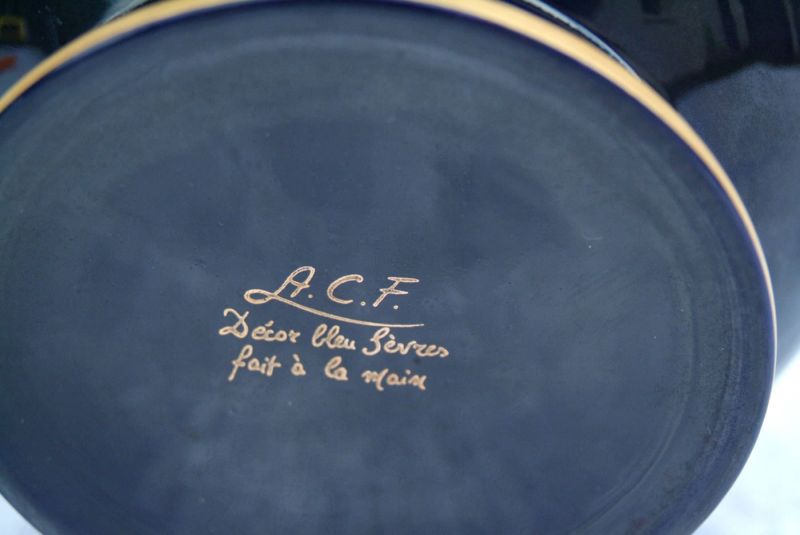 A.C.F.
Décor bleu Sèvres
fait à la main